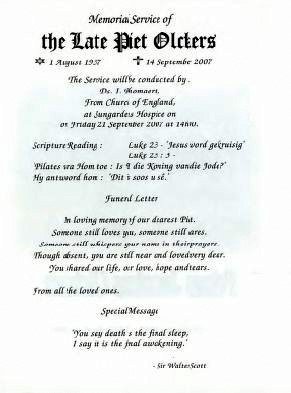 Memorial Service of
the Late Piet Olckers
✡ 1 August 1937 ✝ 14 September 2007
The Service will be conducted by.
Ds. I. Thomaert.
From Church of England,
at Sungardens Hospice on
on Friday 21 September 2007 at 14h00.
Scripture Reading : Luke 23 - 'Jesus word gekruisig'
Luke 23 : 3 -
'Pilates vra Hom toe : Is U die Koning van die Jode?'
Hy antwoord hom : 'Dit is soos u sê.'
Funeral Letter
In loving memory of our dearest Piet.
Someone still loves you, someone still cares.
Someone still whispers your name in their prayers.
Though absent, you are still near and loved very dear.
You shared our life, our love, hope and tears.
From all the loved ones.
Special Message
'You say death is the final sleep,
I say it is the final awakening.'
- Sir Walter Scott